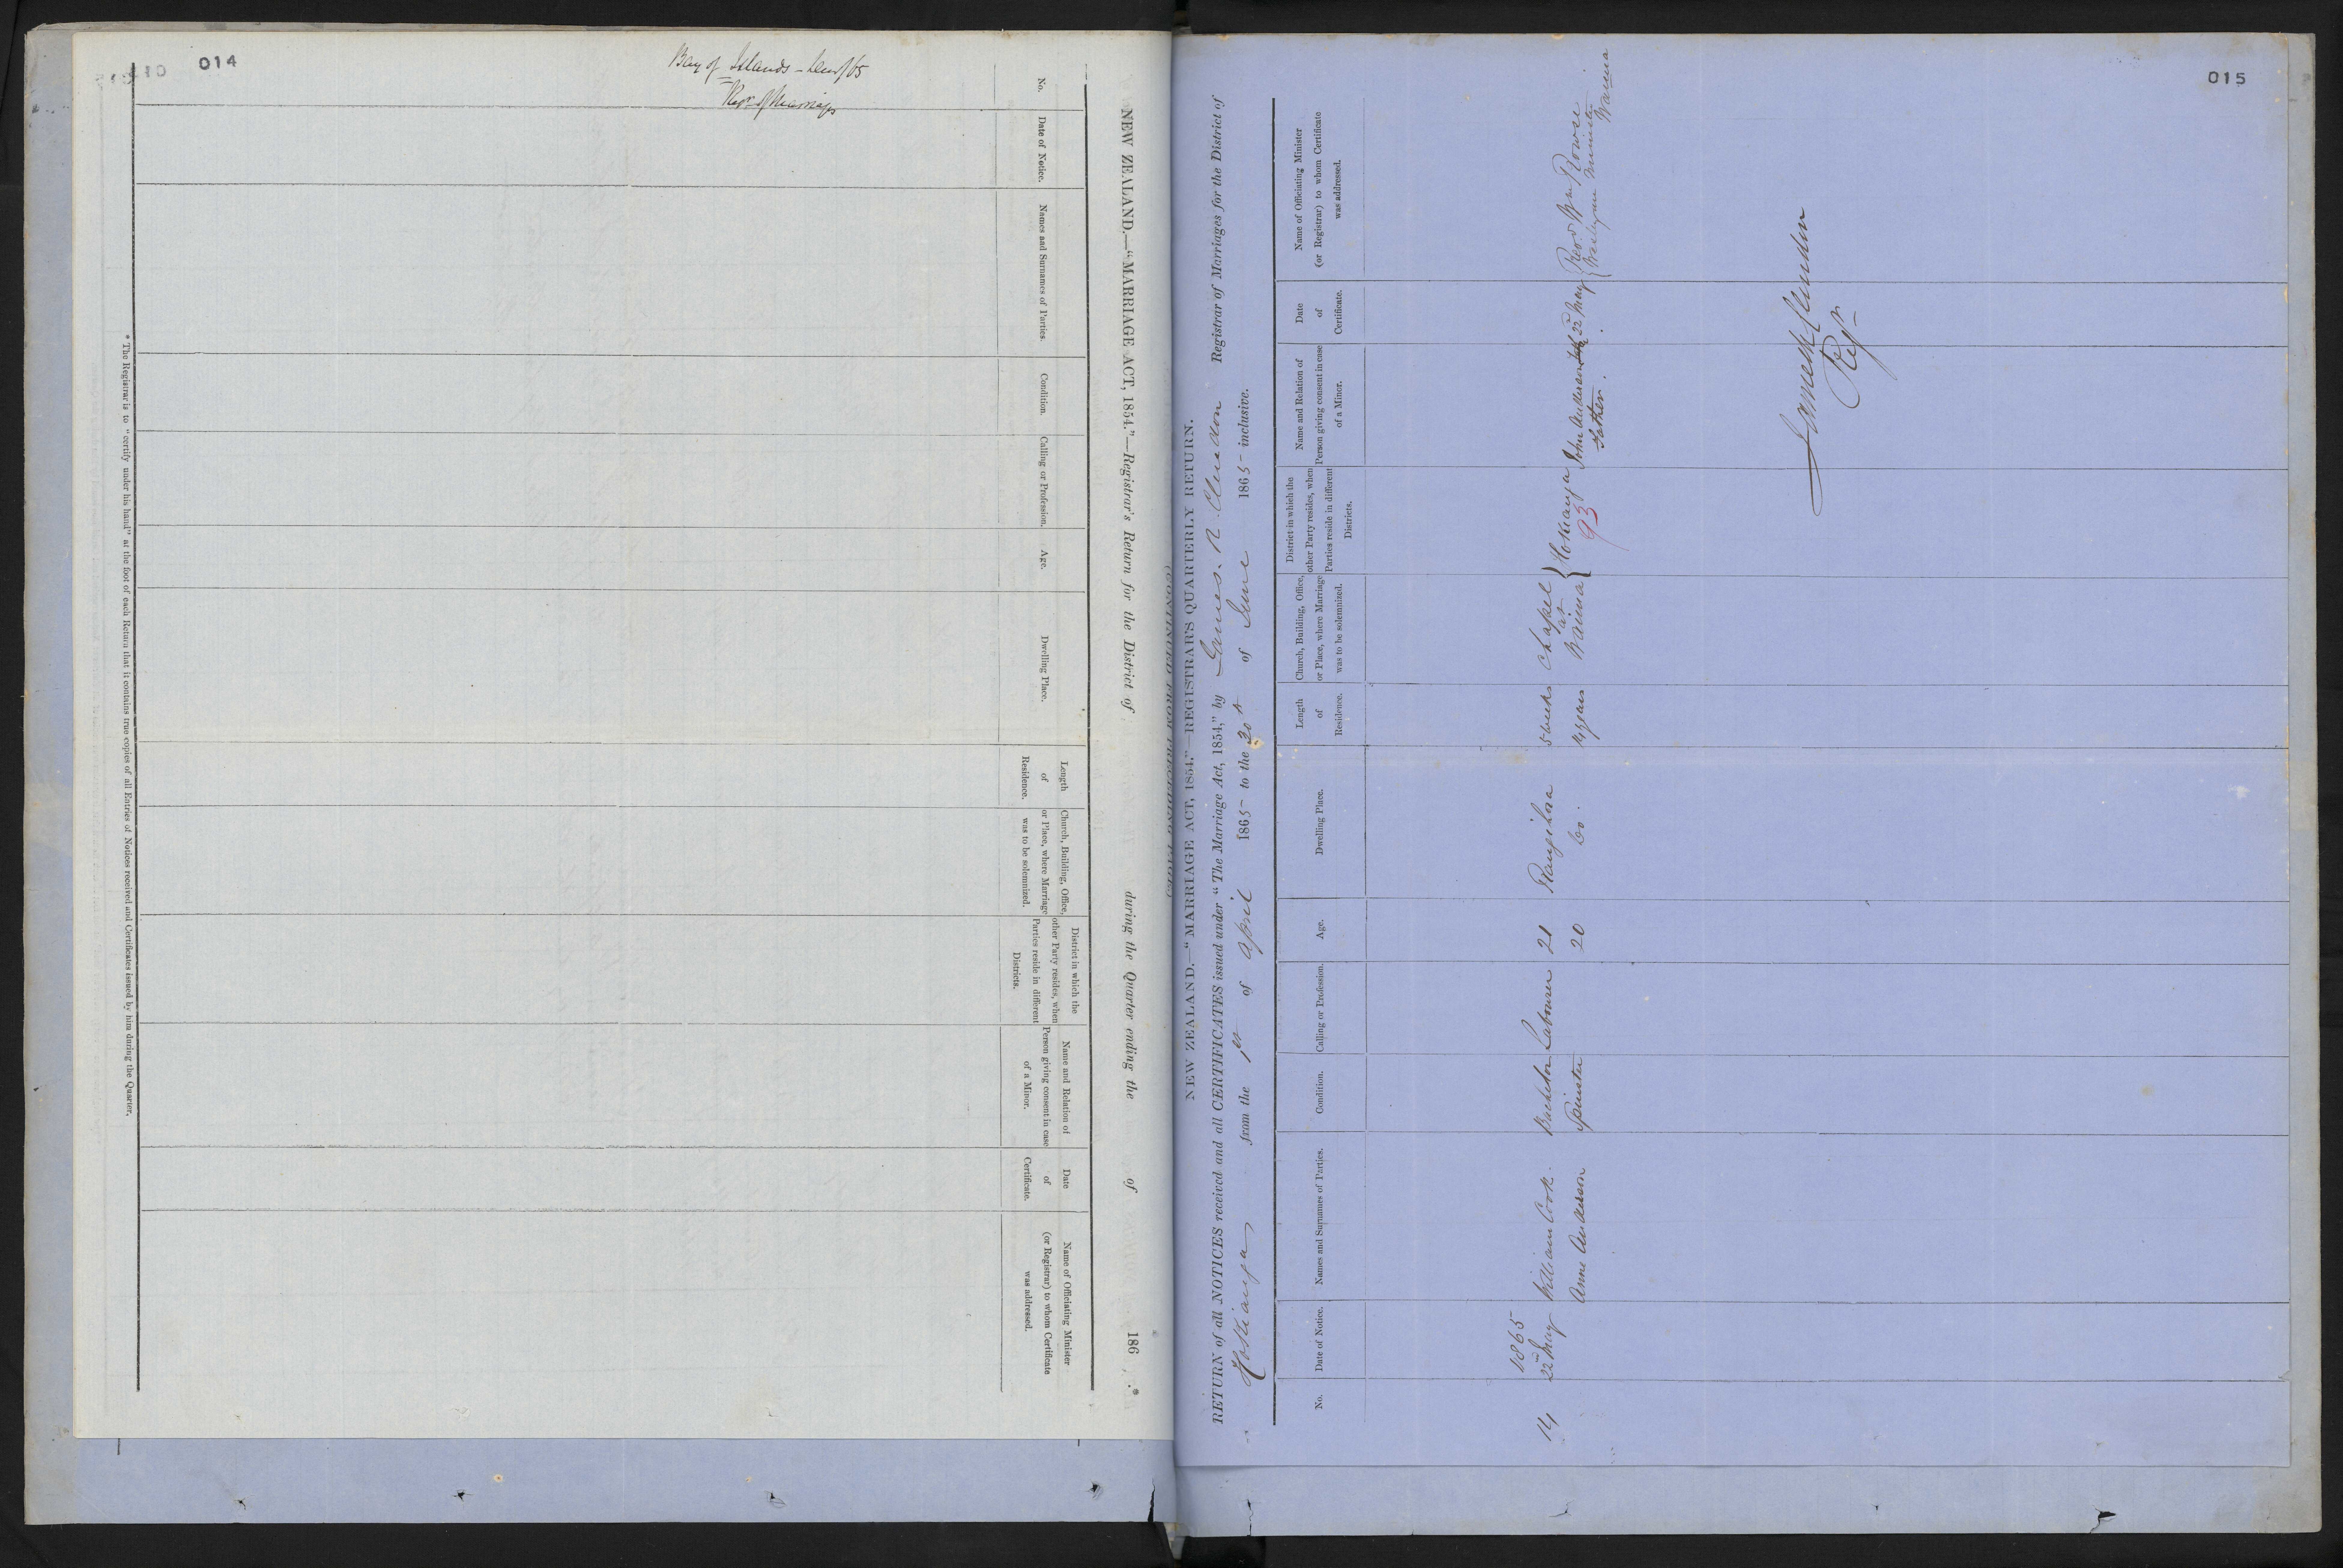 014
Bay of Islands - 65
NEW ZEALAND.—"MARRIAGE ACT, 1854."—Registrar's Return for the District of during the Quarter ending the of 186 .*
No.
Date of Notice.
Names and Surnames of Parties.
Condition.
Calling or Profession.
Age.
Dwelling Place.
Length of Residence.
Church, Building, Office, or Place, where Marriage was to be solemnized.
District in which the other Party resides, when Parties reside in different Districts.
Name and Relation of Person giving consent in case of a Minor.
Date of Certificate.
Name of Officiating Minister (or Registrar) to whom Certificate was addressed.
* The Registrar is to "certify under his hand" at the foot of each Return that it contains true copies of all Entries of Notices received and Certificates issued by him during the Quarter.
015
NEW ZEALAND.—"MARRIAGE ACT, 1854."—REGISTRAR'S QUARTERLY RETURN.
RETURN of all NOTICES received and all CERTIFICATES issued under "The Marriage Act, 1854," by James. R. Clendon Registrar of Marriages for the District of
Hokianga from the 1st of April 1865 to the 30th of June 1865 inclusive.
No.
Date of Notice.
Names and Surnames of Parties.
Condition.
Calling or Profession.
Age.
Dwelling Place.
Length of Residence.
Church, Building, Office, or Place, where Marriage was to be solemnized.
District in which the other Party resides, when Parties reside in different Districts.
Name and Relation of Person giving consent in case of a Minor.
Date of Certificate.
Name of Officiating Minister (or Registrar) to whom Certificate was addressed.
1865
14 22nd May William Cook. Bachelor Labourer 21 Rangihoa 3 weeks Chapel at Waima Hokianga John Anderson Father. 22nd May Revd Wm Rowse Wesleyan Minister Waima
Anne Anderson Spinster 20 Do. 4 years
93
James R Clendon
Regr